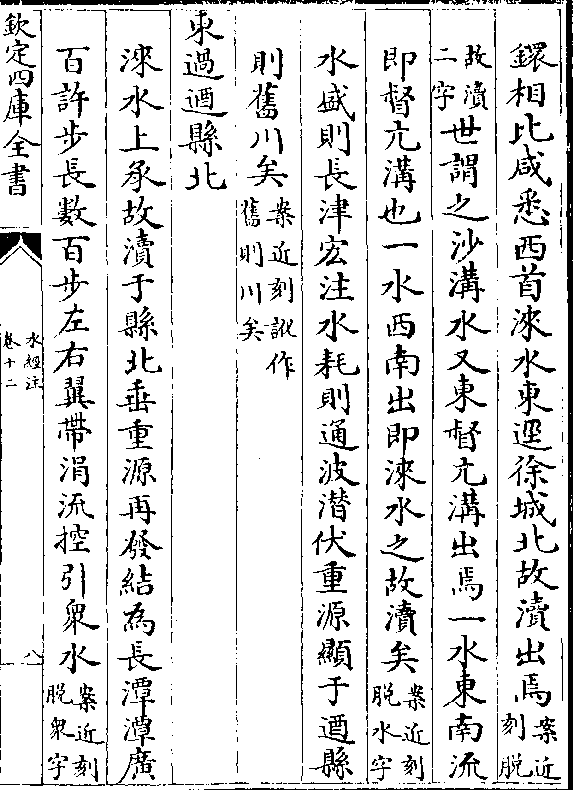 鐶相比咸悉西首淶水東逕徐城北故瀆出焉案近刻脫
故瀆二字世謂之沙溝水又東督亢溝出焉一水東南流
即督亢溝也一水西南出即淶水之故瀆矣案近刻脫水字
水盛則長津宏注水耗則通波潛伏重源顯于遒縣
則舊川矣案近刻訛作舊則川矣
東過遒縣北
淶水上承故瀆于縣北垂重源再發結為長潭潭廣
百許步長數百步左右翼帶涓流控引衆水案近刻脫衆字
欽定四庫全書
水經注
卷十二
八